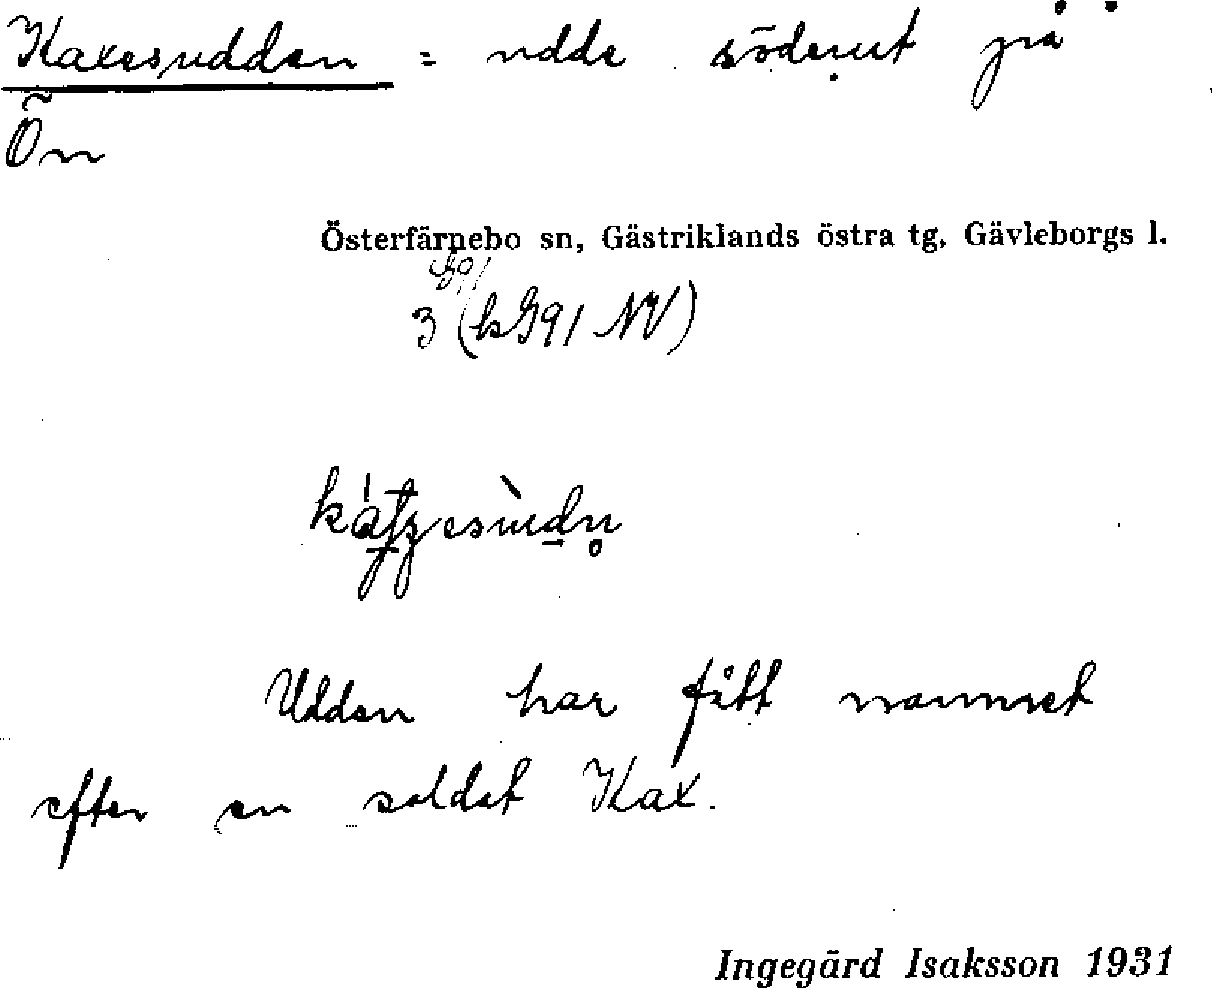 Kaxesudden = udde söderut på
Ön
Österfärnebo sn, Gästriklands östra tg, Gävleborgs l.
3 (kG91 NV)
Udden har fått namnet
efter en soldat Kax.
Ingegärd Isaksson 1931